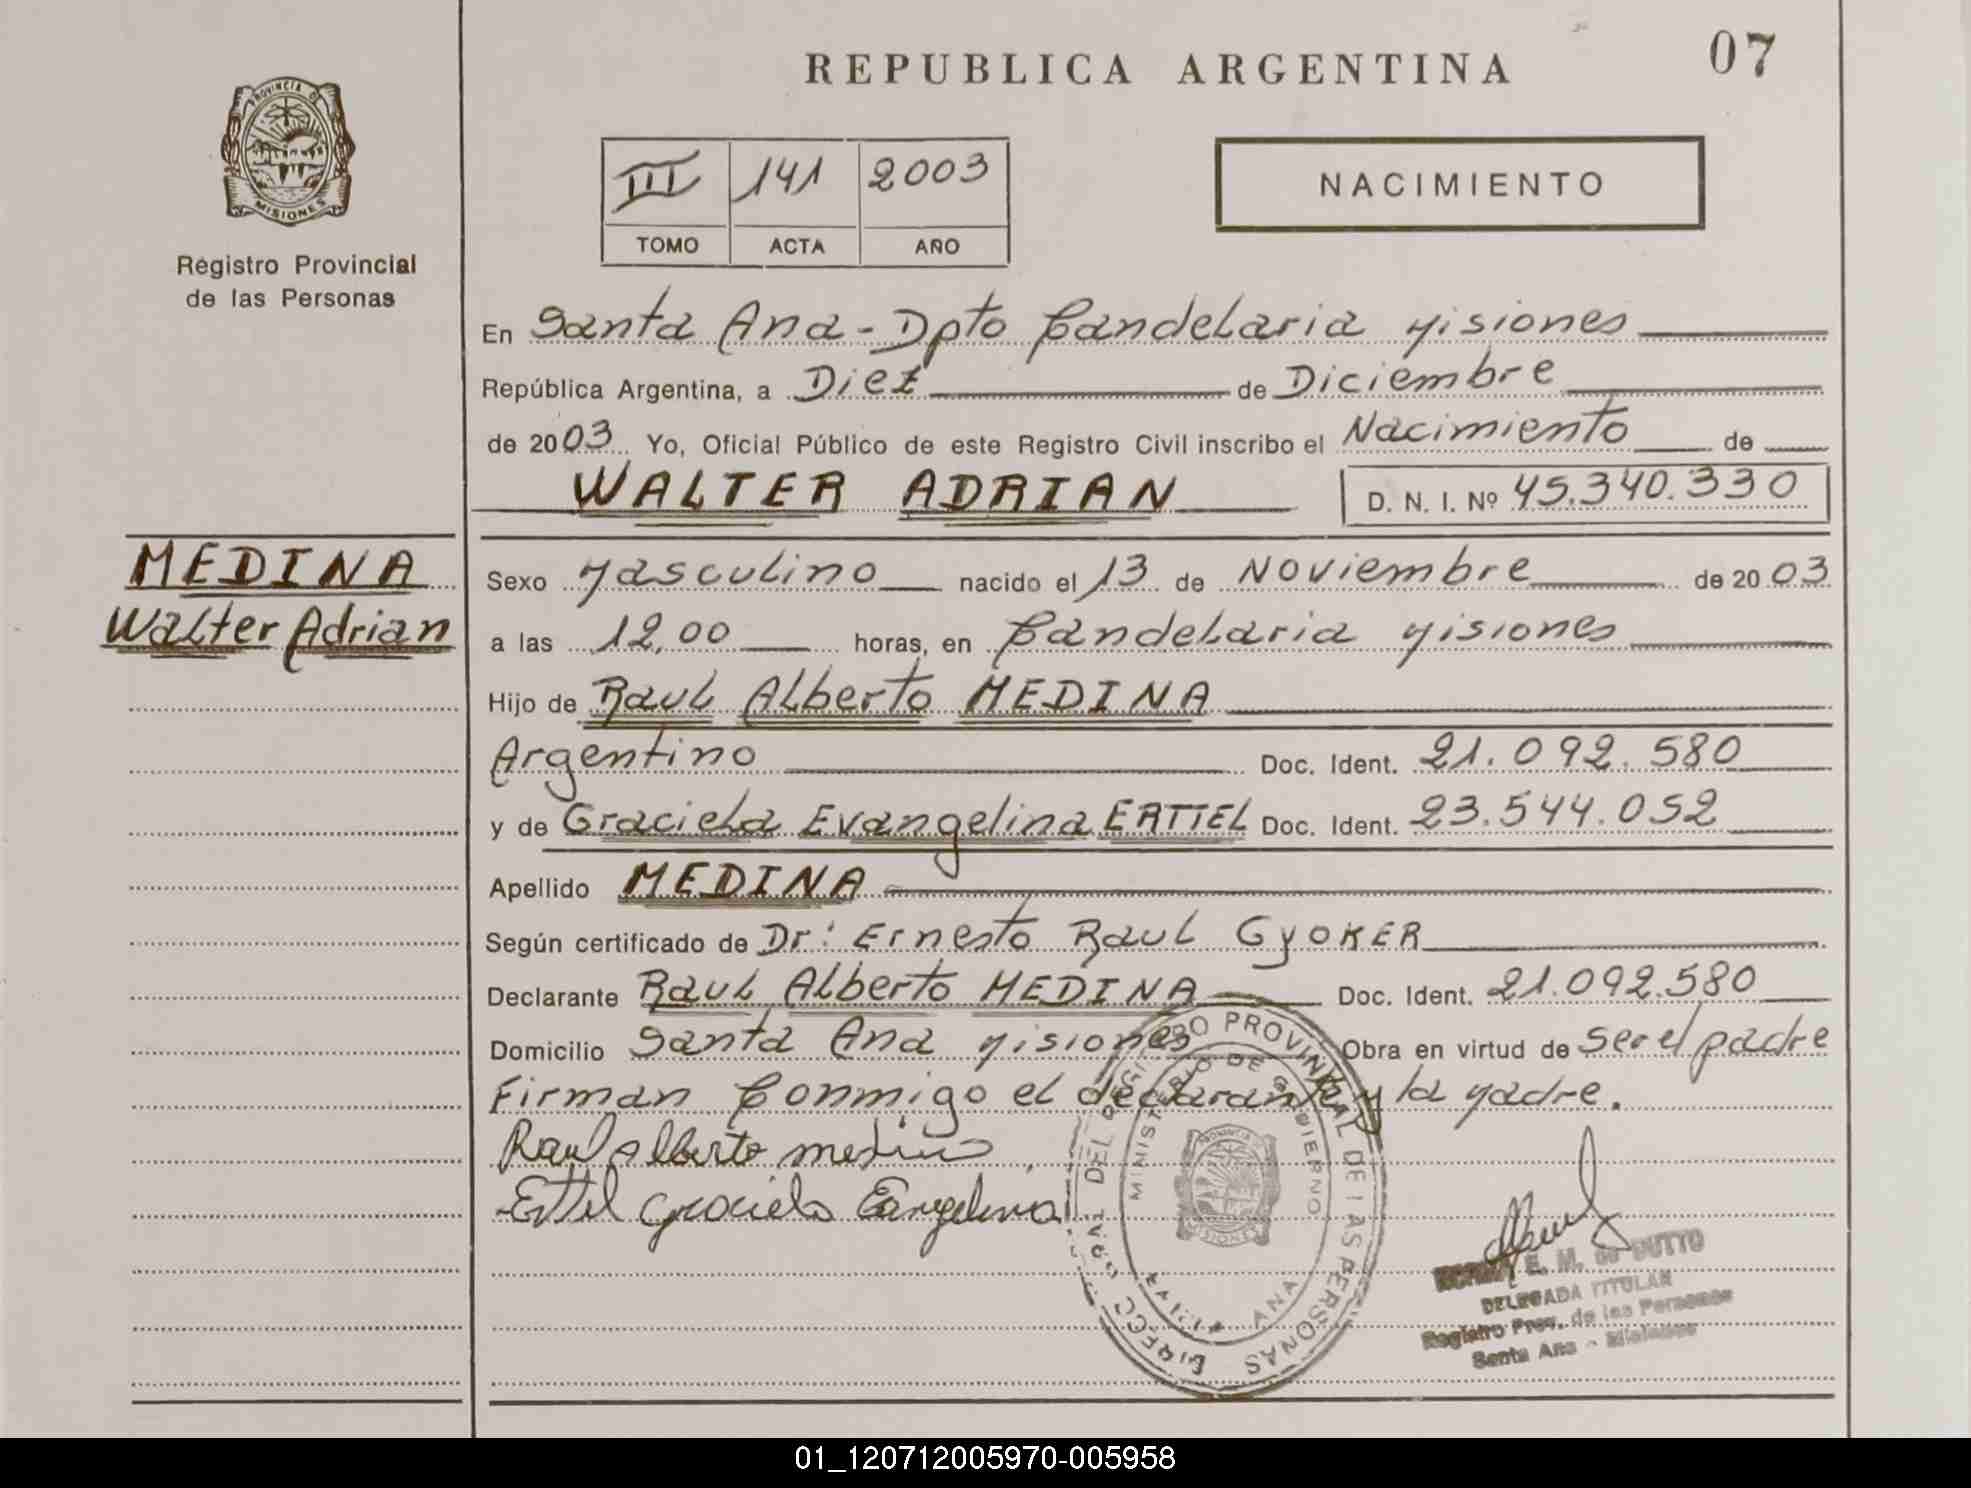 REPUBLICA ARGENTINA
07
PROVINCIA DE
MISIONES
Registro Provincial
de las Personas
III 141 2003
TOMO ACTA AÑO
NACIMIENTO
En Santa Ana - Dpto Candelaria Misiones
República Argentina, a Diez de Diciembre
de 2003 Yo, Oficial Público de este Registro Civil inscribo el Nacimiento de
WALTER ADRIAN D. N. I. Nº 45.340.330
MEDINA
Walter Adrian
Sexo Masculino nacido el 13 de Noviembre de 2003
a las 12,00 horas, en Candelaria Misiones
Hijo de Raul Alberto MEDINA
Argentino Doc. Ident. 21.092.580
y de Graciela Evangelina ERTTEL Doc. Ident. 23.544.052
Apellido MEDINA
Según certificado de Dr: Ernesto Raul GYOKER
Declarante Raul Alberto MEDINA Doc. Ident. 21.092.580
Domicilio Santa Ana Misiones Obra en virtud de ser el padre
Firman Conmigo el declarante y la Madre.
Raul Alberto medina
Ettel Graciela Eangelina
DEL REGISTRO PROVINCIAL DE LAS PERSONAS
MINISTERIO DE GOBIERNO
ANA
E. M. de DUTTO
DELEGADA TITULAR
Registro Prov. de las Personas
Santa Ana - Misiones
01_120712005970-005958